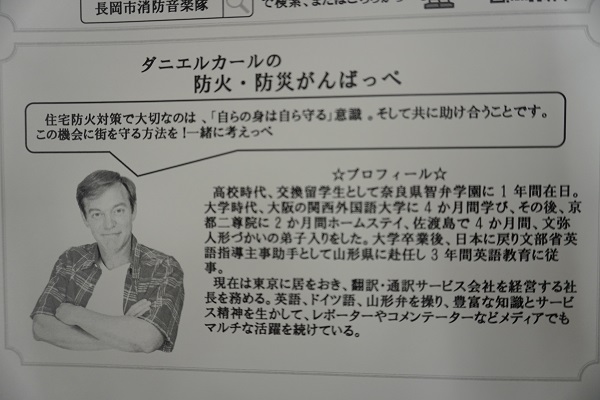 長岡市消防音楽隊
で検索、またはこちらから
ダニエルカールの
防火・防災がんばっぺ
住宅防火対策で大切なのは、「自らの身は自ら守る」意識。そして共に助け合うことです。
この機会に街を守る方法を!一緒に考えっぺ
☆プロフィール☆
高校時代、交換留学生として奈良県智弁学園に1年間在日。
大学時代、大阪の関西外国語大学に4か月間学び、その後、京
都二尊院に2か月間ホームステイ、佐渡島で4か月間、文弥
人形づかいの弟子入りをした。大学卒業後、日本に戻り文部省英
語指導主事助手として山形県に赴任し3年間英語教育に従
事。
現在は東京に居をおき、翻訳・通訳サービス会社を経営する社
長を務める。英語、ドイツ語、山形弁を操り、豊富な知識とサービ
ス精神を生かして、レポーターやコメンテーターなどメディアでも
マルチな活躍を続けている。